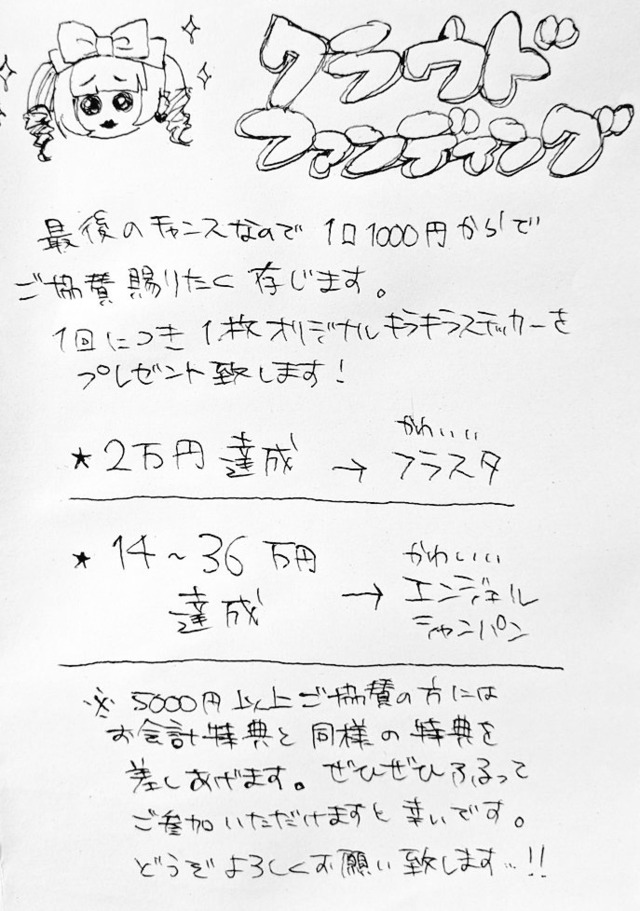 クラウド
ファンディング
最後のチャンスなので 1口1000円からで
ご協賛賜りたく存じます。
1回につき1枚オリジナルキラキラステッカーを
プレゼント致します!
★2万円達成 → かわいい
フラスタ
★14〜36万円
達成 → かわいい
エンジェル
シャンパン
※5000円以上ご協賛の方には
お会計特典と同様の特典を
差しあげます。ぜひぜひふるって
ご参加いただけますと幸いです。
どうぞよろしくお願い致します!!